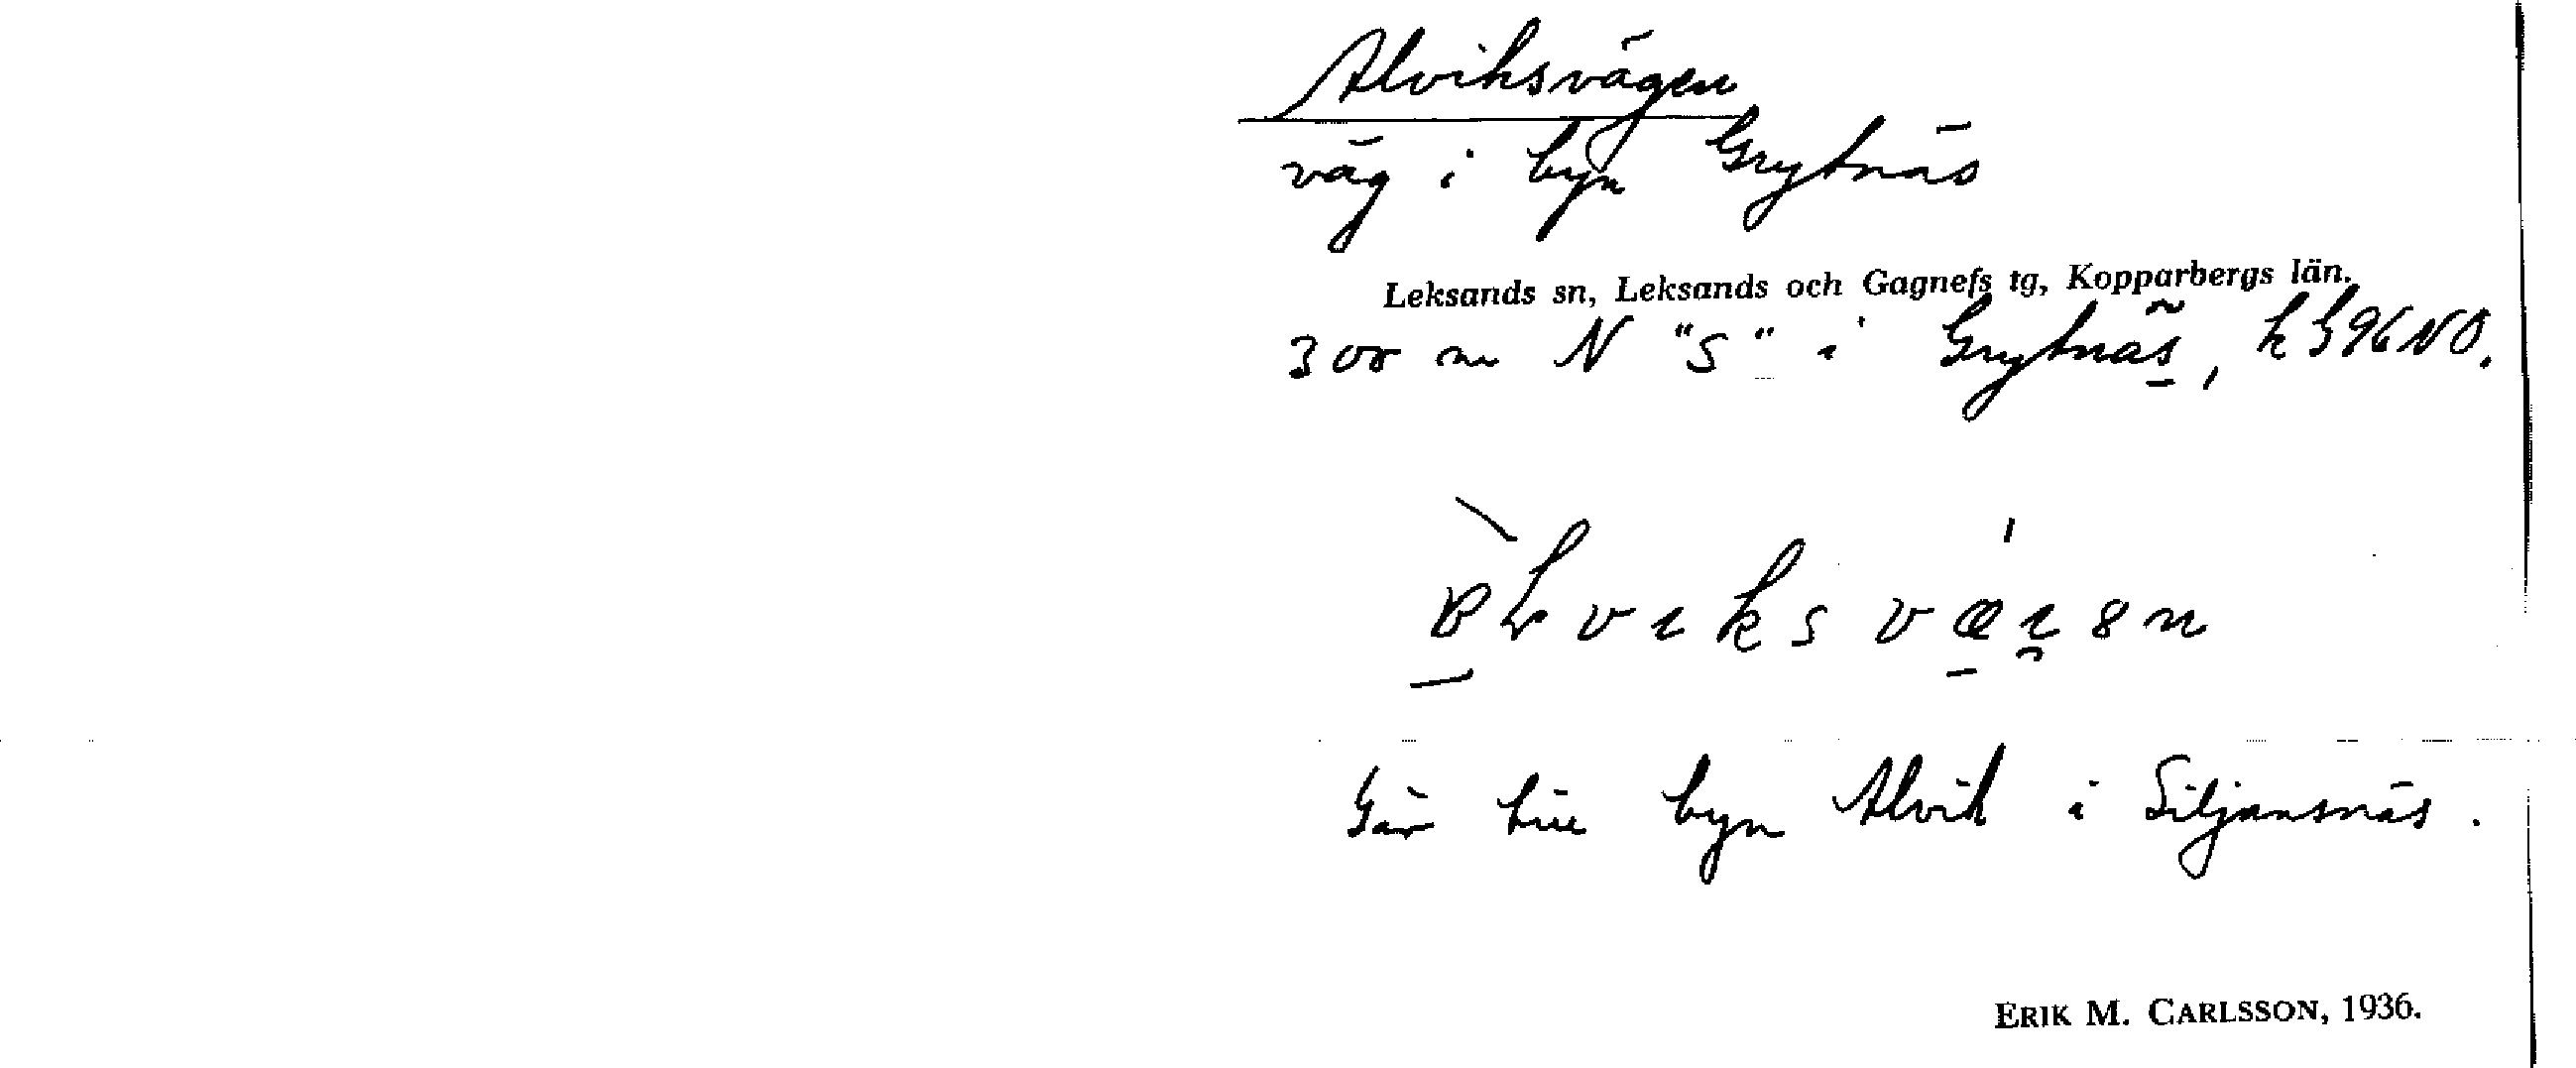 Alviksvägen
väg i byn Grytnäs
Leksands sn, Leksands och Gagnefs tg, Kopparbergs län.
300 m N "S" i Grytnäs, k 596 NO.
Går till byn Alvik i Siljansnäs.
ERIK M. CARLSSON, 1936.